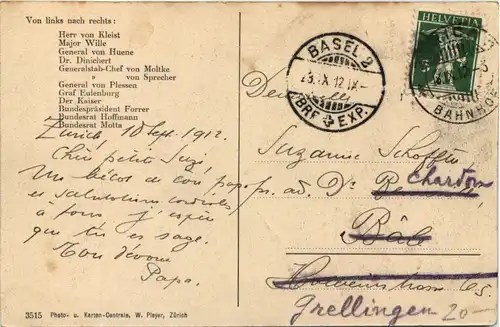 Von links nach rechts:
Herr von Kleist
Major Wille
General von Huene
Dr. Dinichert
Generalstab-Chef von Moltke
" von Sprecher
General von Plessen
Graf Eulenburg
Der Kaiser
Bundespräsident Forrer
Bundesrat Hoffmann
Bundesrat Motta
Zurich, 10 Sept. 1912.
Chère petite Suzi,
Un bécot de ton papa
et salutations cordiales
à tous j'espère
que tu es sage.
Ton dévoué
Papa.
3515 Photo- u. Karten-Centrale, W. Pleyer, Zürich
HELVETIA
5
BAHNHOF
BASEL 2
BRF EXP.
Suzanne
ad. Dr
Chardon
Bâle
65
Grellingen
20-